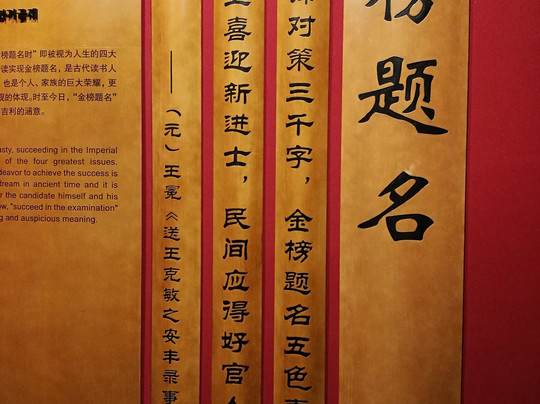 榜题名
对策三千字，金榜题名五色
喜迎新进士，民间应得好官
——（元）王冕《送王克敏之安丰录事
榜题名时”即被视为人生的四大
读实现金榜题名，是古代读书人
也是个人、家族的巨大荣耀，更
的体现。时至今日，“金榜题名”
吉利的涵意。
sty, succeeding in the Imperial
of the four greatest issues.
deavor to achieve the success is
tream in ancient time and it is
r the candidate himself and his
ow, "succeed in the examination"
ng and auspicious meaning.